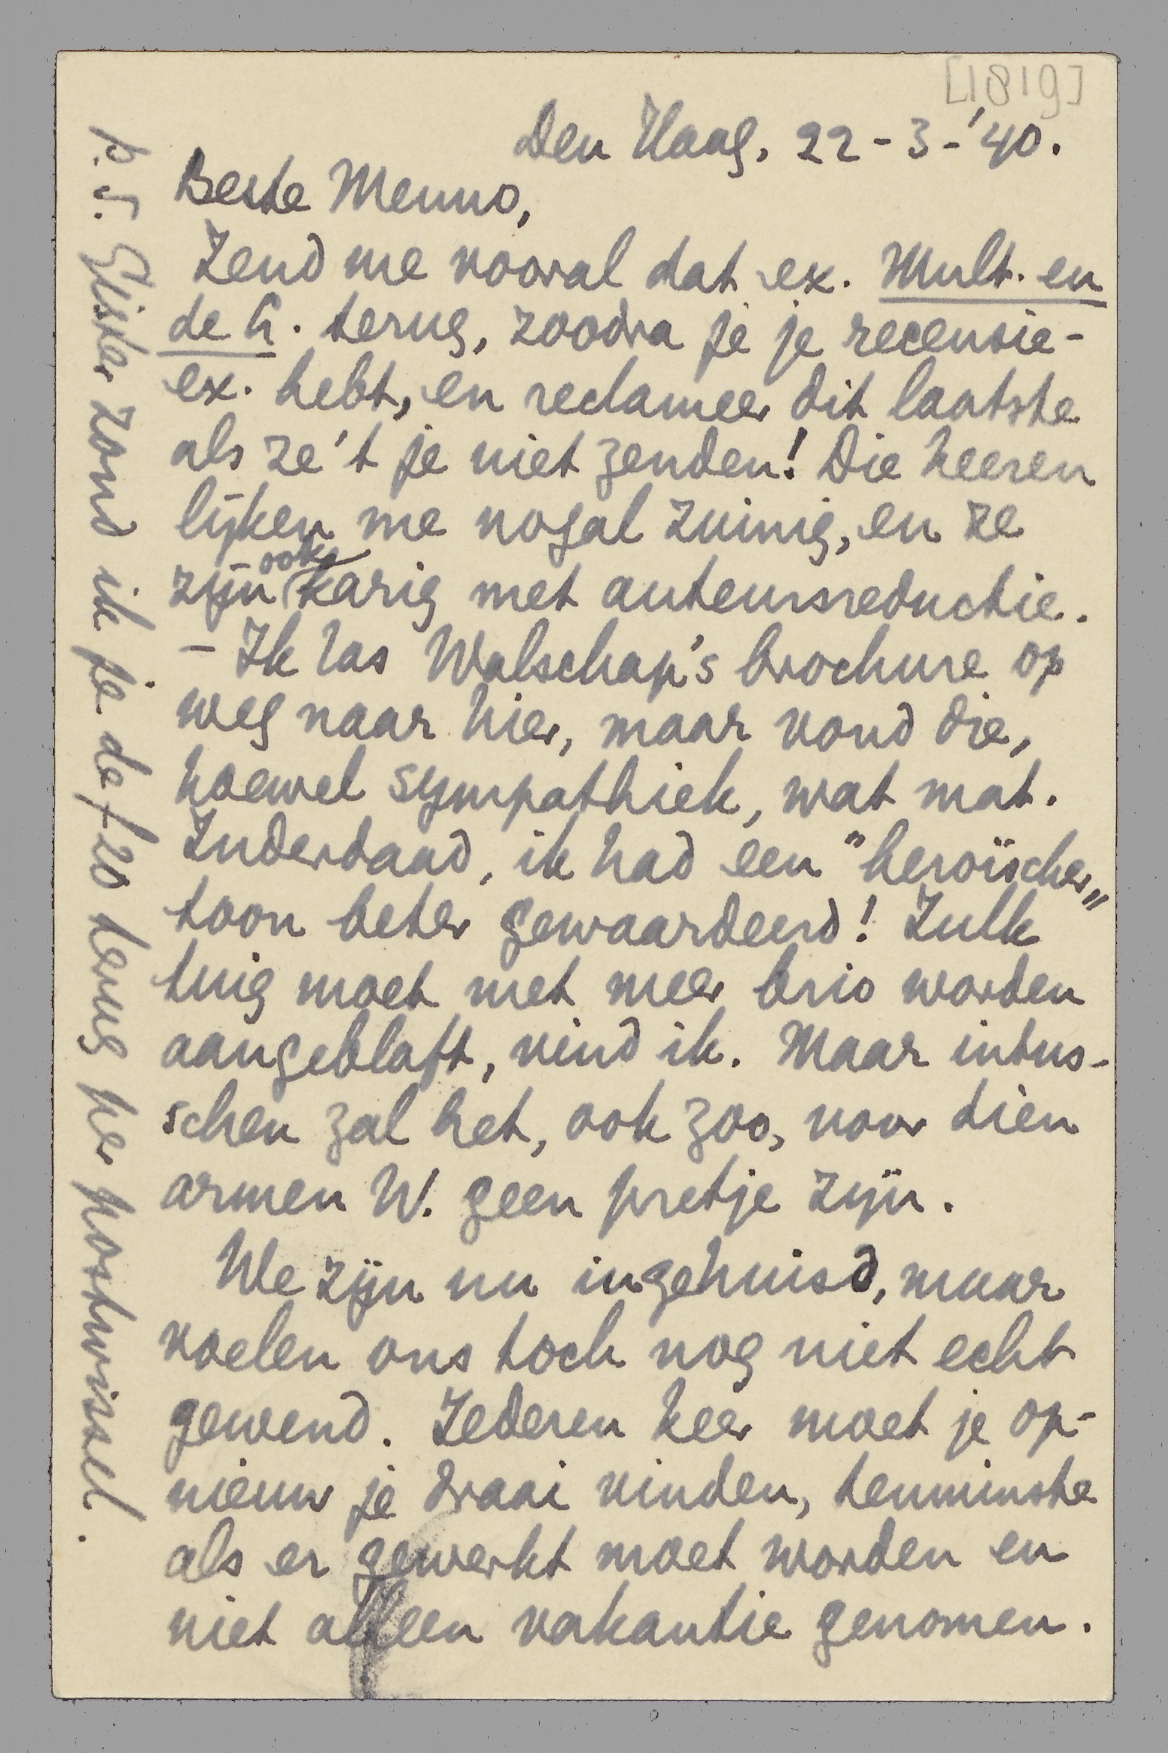 [1819]
Den Haag, 22-3-'40.
Beste Menno,
Zend me vooral dat ex. Mult. en
de L. terug, zoodra je je recensie-
ex. hebt, en reclameer dit laatste
als ze 't je niet zenden! Die heeren
lijken me nogal zuinig, en ze
zijn ook karig met auteursreductie.
- Ik las Walschap's brochure op
weg naar hier, maar vond die,
hoewel sympathiek, wat mat.
Inderdaad, ik had een "heroïscher"
toon beter gewaardeerd! Zulk
tuig moet met meer brio worden
aangeblaft, vind ik. Maar intus-
schen zal het, ook zoo, voor dien
armen W. geen pretje zijn.
We zijn nu ingehuisd, maar
voelen ons toch nog niet echt
gewend. Iederen keer moet je op-
nieuw je draai vinden, tenminste
als er gewerkt moet worden en
niet alleen vakantie genomen.
P.S. Gister zond ik je de f 20 terug per postwissel.